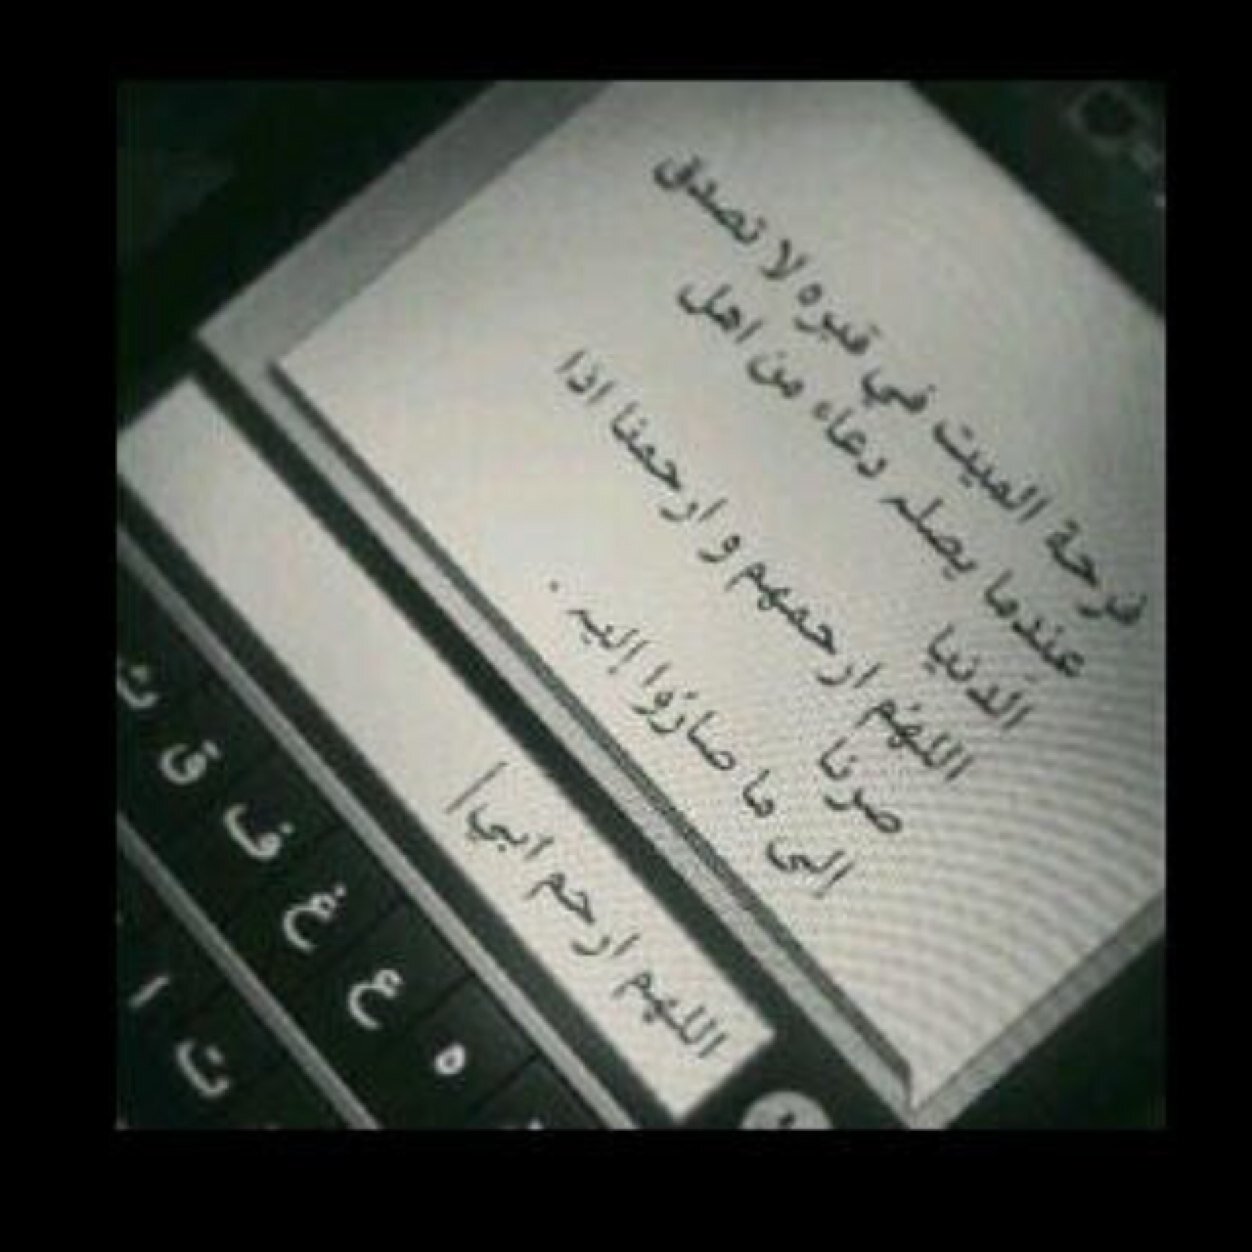 فرحة الميت في قبره لا تصدق
عندما يصله دعاء من اهل
الدنيا
اللهم ارحمهم و ارحمنا اذا
صرنا
إلى ما صاروا إليه .
اللهم ارحم ابي
ث ق ف غ ع ه
ا ت